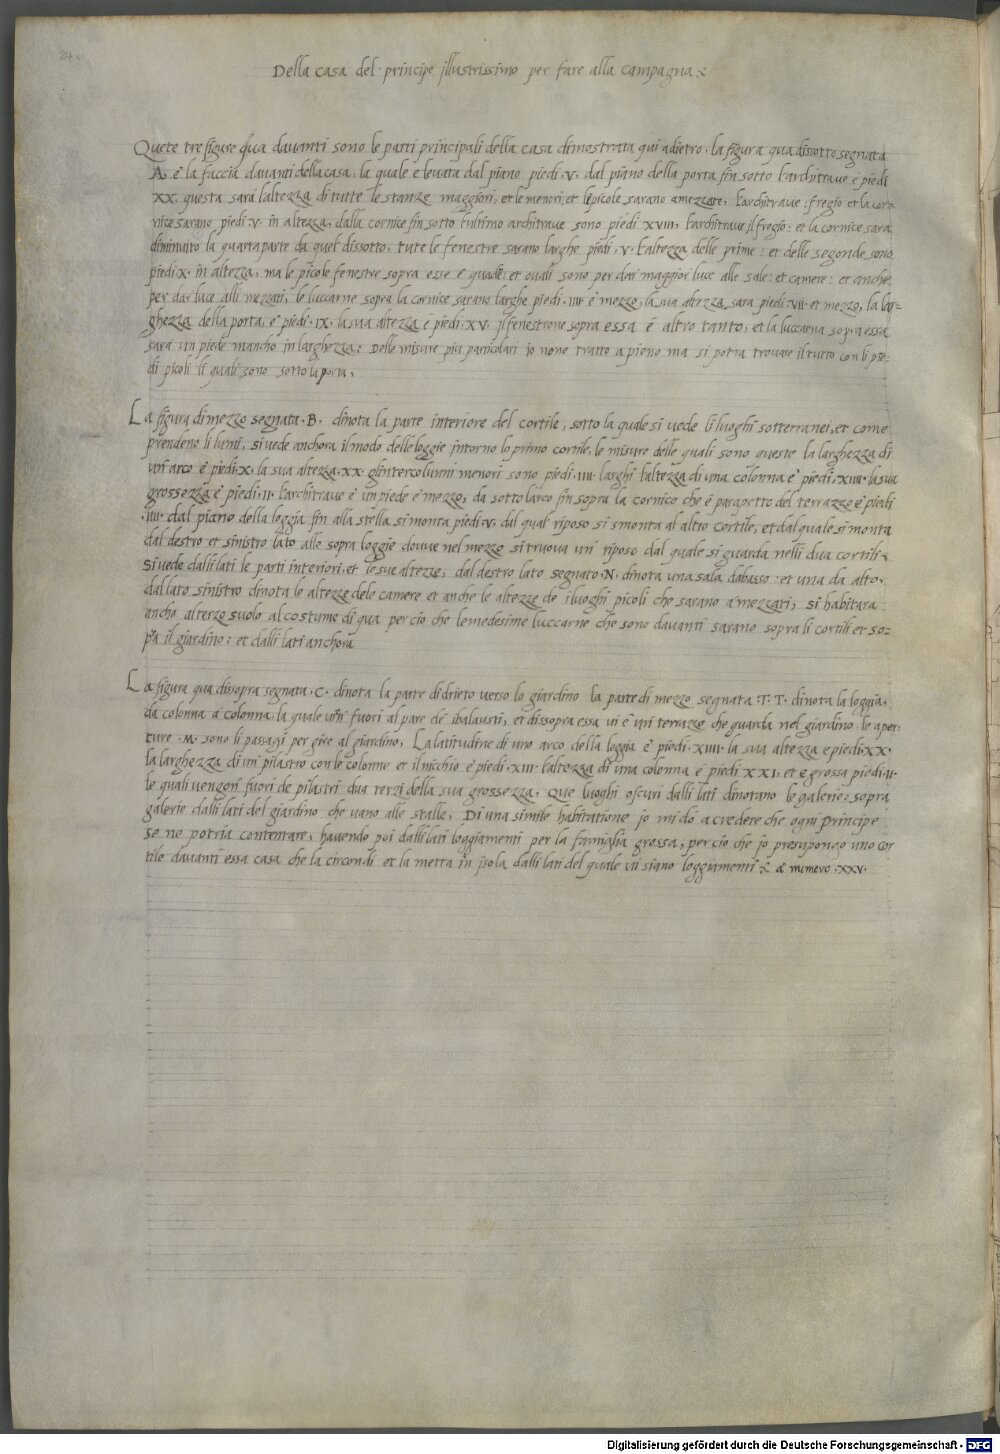 24 v
Della casa del principe jllustrissimo per fare alla campagna
Quete tre figure qua davanti sono le parti principali della casa dimostrata qui adietro, la figura qua dissotto segnata
A, è la faccia davanti della casa, la quale è levata dal piano piedi .V. dal piano della porta fin sotto l'architrave è piedi
XX, questa sarà l'altezza di tutte le stanze maggiori, et le menori, et le picole sarano amezzate, L'architrave: fregio et la cor=
nice sarano piedi .V. in altezza, dalla cornice fin sotto l'ultimo architrave sono piedi XVIII, l'architrave jl fregio: et la cornice sara
diminuito la quarta parte da quel dissotto, tute le fenestre sarano larghe piedi .V. l'altezza delle prime: et delle segonde sono
piedi .X. in altezza, ma le picole fenestre sopra esse e quadre et ovali sono per dar maggior luce alle sale: et camere: et anche
per dar luce alli mezzati, le luccarne sopra la cornice sarano larghe piedi .IIII. e mezzo, la sua altezza sara piedi .VII. et mezzo, la lar=
ghezza della porta, è piedi .IX. la sua altezza è piedi .XV. jl fenestrone sopra essa è altro tanto, et la luccaena sopra essa
sara un piede mancho in larghezza: Delle misure piu particolari jo none tratto a pieno ma si potra trovare il tutto con li pie=
di picoli li quali sono sotto la porta,
La figura di mezzo segnata .B. dinota la parte interiore del cortile, sotto la quale si vede li luoghi sotterranei, et come
prendeno li lumi, si vede anchora il modo delle loggie intorno lo primo cortile, le misure delle quali sono queste la larghezza di
un arco è piedi .X. la sua altezza .XX. gl'intercolunni menori sono piedi .IIII. larghi l'altezza di una colonna è piedi .XIII. la sua
grossezza è piedi .II. l'architrave è un piede e mezzo, da sotto l'arco fin sopra la cornice che è parapetto del terrazzo è piedi
.IIII. dal piano della loggia fin alla stella si monta piedi .V. dal qual riposo si smonta al altro cortile, et dal quale si monta
dal destro et sinistro lato alle sopra loggie douve nel mezzo si truova un riposo dal quale si guarda nelli dua cortili
Si vede dalli lati le parti interiori, et le sue altezze, dal destro lato segnato .N. dinota una sala dabasso: et una da alto.
dal lato sinistro dinota le altezze dele camere et anche le altezze de i luoghi picoli che sarano amezzati, si habitara
ancho alterzo suolo al costume di qua per cio che le medesime luccarne che sono davanti sarano sopra li cortili et so=
pra il giardino: et dalli lati anchora
La figura qua dissopra segnata .C. dinota la parte didrieto verso lo giardino la parte di mezzo segnata .T.T. dinota la loggia,
da colonna a colonna la quale vien fuori al pare de i balausti, et dissopra essa vi è un terrazzo che guarda nel giardino le aper=
ture .M. sono li passagi per gire al giardino, La latitudine di uno arco della loggia è piedi .XIIII. la sua altezza e piedi .XX.
la larghezza di un pilastro con le colonne et il nicchio è piedi .XIII. l'altezza di una colonna è piedi XXI, et e grossa piedi .II.
le quali vengon fuori de pilastri dua terzi della sua grossezza, Que luoghi oscuri dalli lati dinotano le galerie: sopra
galerie dalli lati del giardino che vano alle stalle, Di una simile habitatione jo mi do a credere che ogni principe
se ne potria contentare, havendo poi dalli lati loggiamenti per la famiglia grossa, per cio che jo presupongo uno cor
tile davanti essa casa che la circondi et la metta in jsola dalli lati del quale vi siano loggiamenti & a numero .XXV.
Digitalisierung gefördert durch die Deutsche Forschungsgemeinschaft - DFG